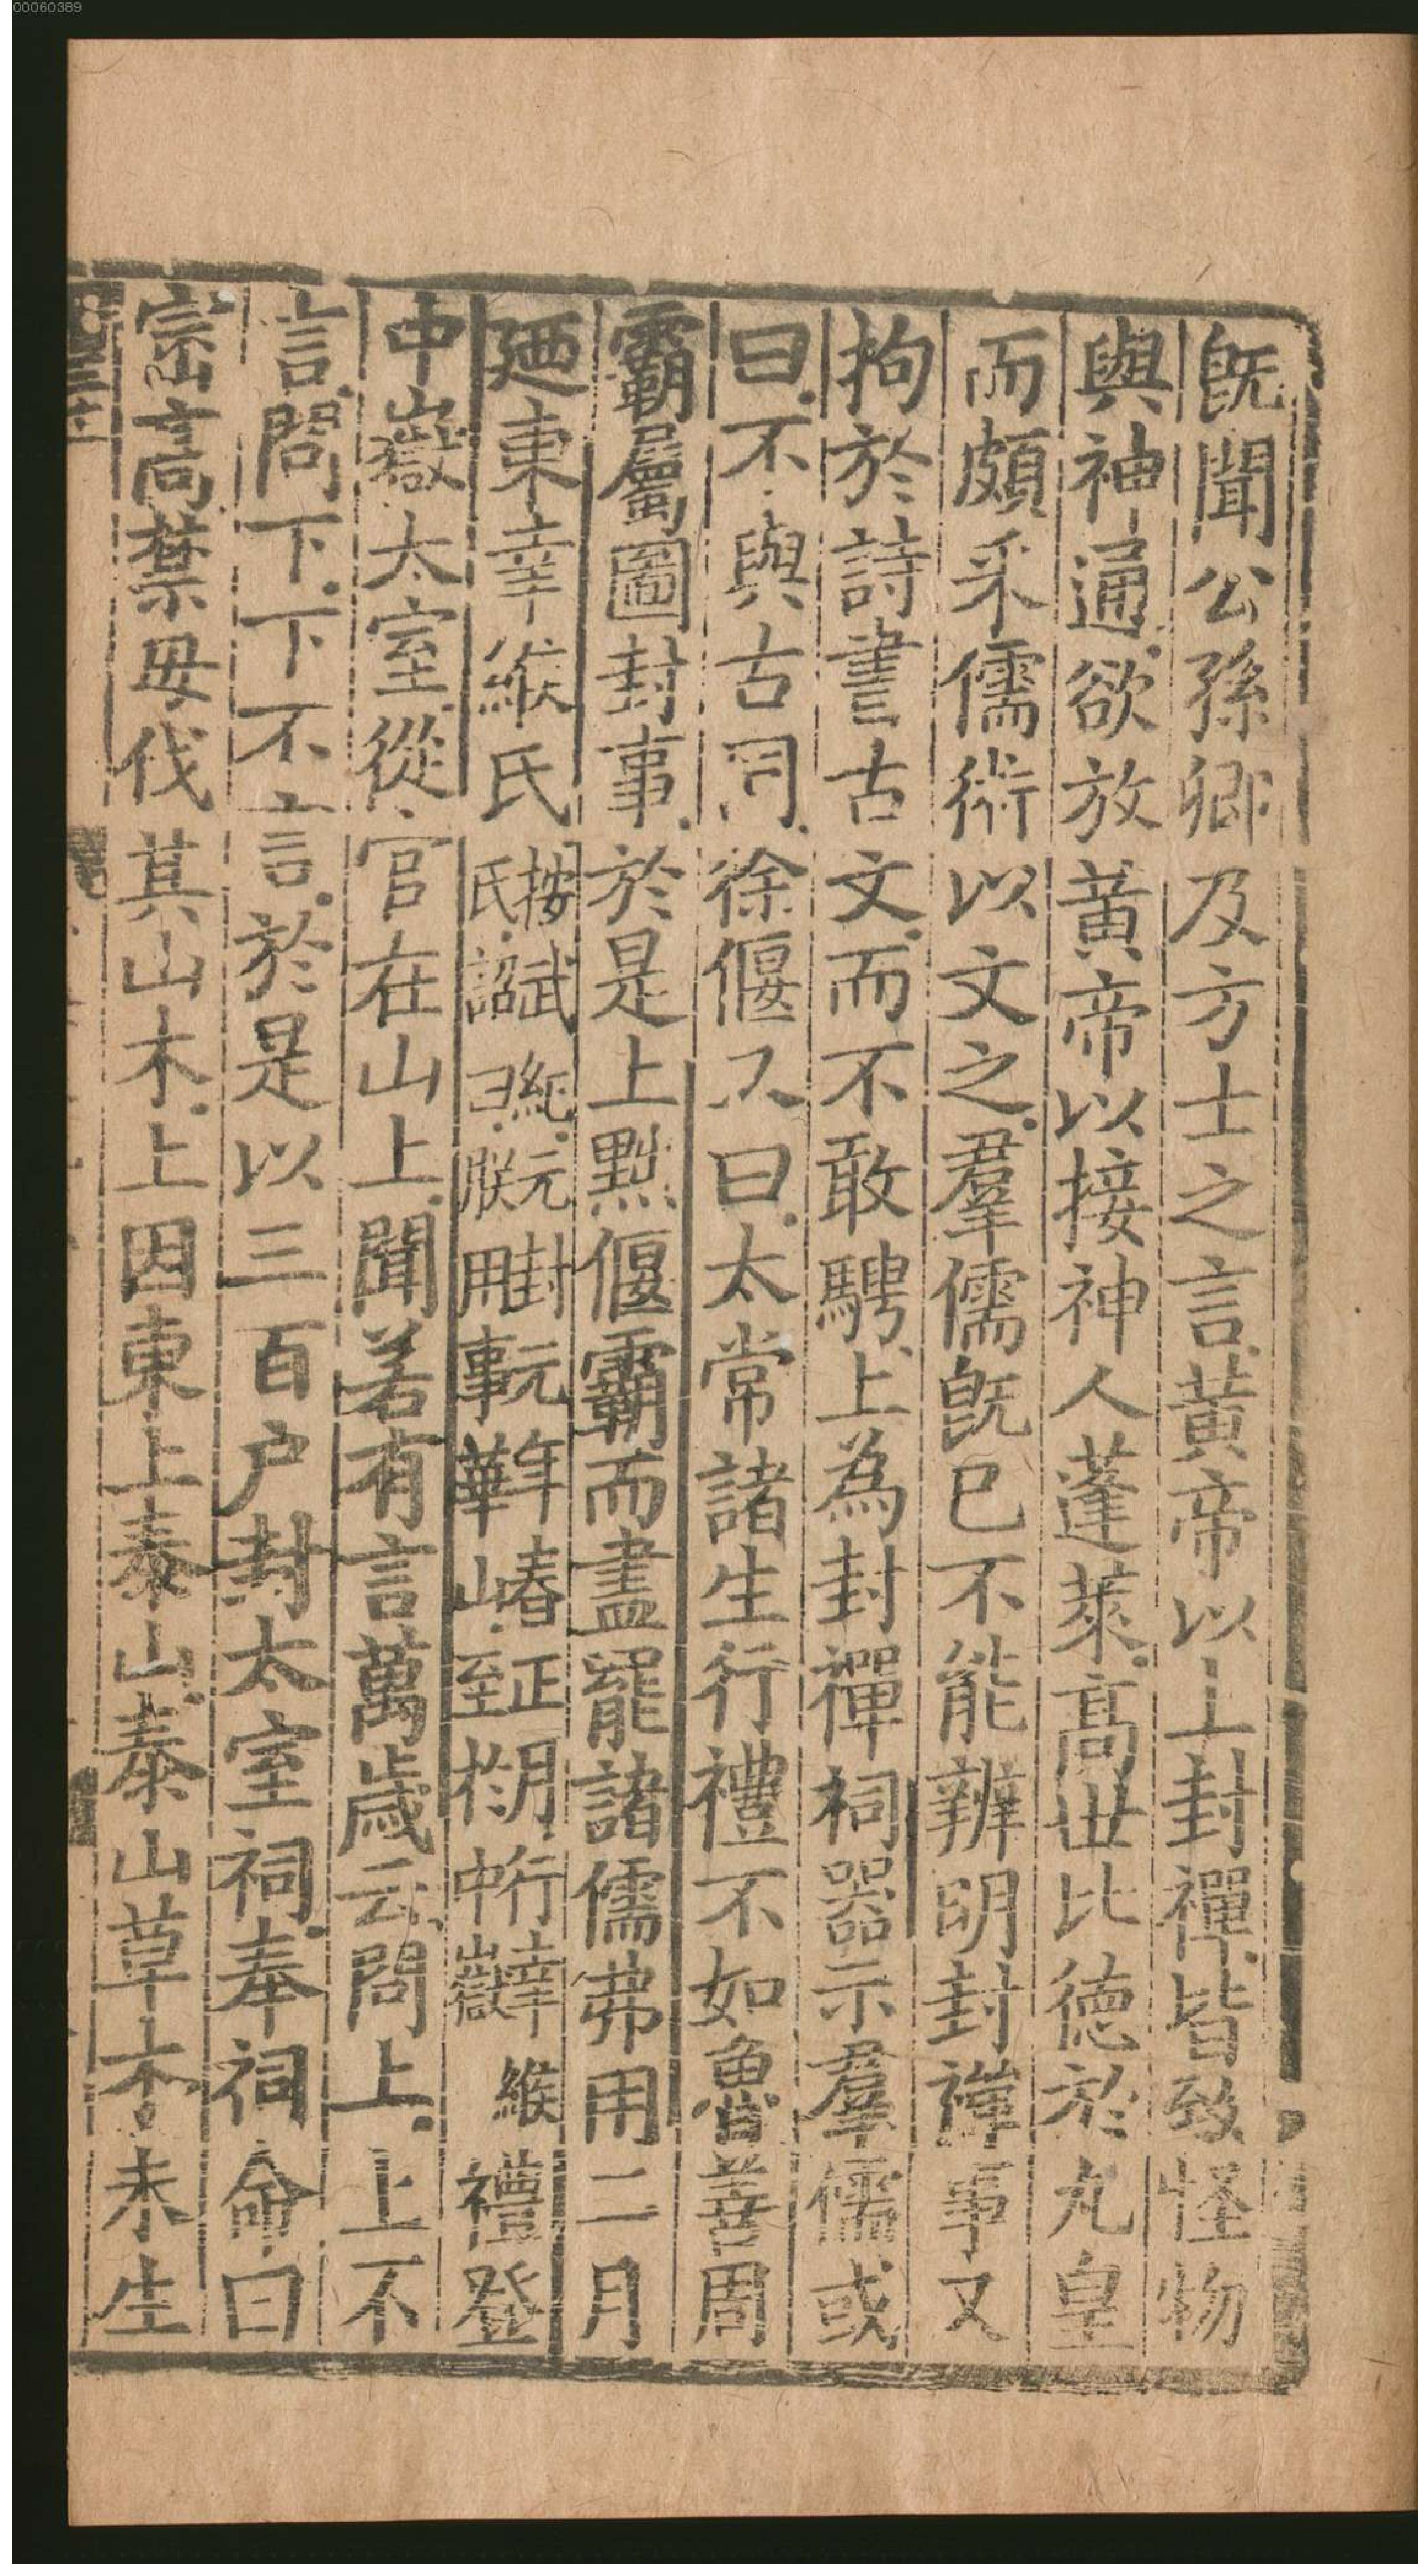 00060389
旣聞公孫卿及方士之言黃帝以上封禪皆致怪物
與神通欲放黃帝以接神人蓬萊高世比德於九皇
而頗采儒術以文之羣儒旣已不能辨明封禪事又
拘於詩書古文而不敢騁上為封禪祠器示羣儒或
曰不與古同徐偃又曰太常諸生行禮不如魯善周
霸屬圖封事於是上黜偃霸而盡罷諸儒弗用二月
廼東幸緱氏按武紀元封元年春正月行幸緱氏詔曰朕用事華山至於中嶽禮登
中嶽太室從官在山上聞若有言萬歲云問上上不
言問下下不言於是以三百户封太室祠奉祠命曰
崈高禁毋伐其山木上因東上泰山泰山草木未生